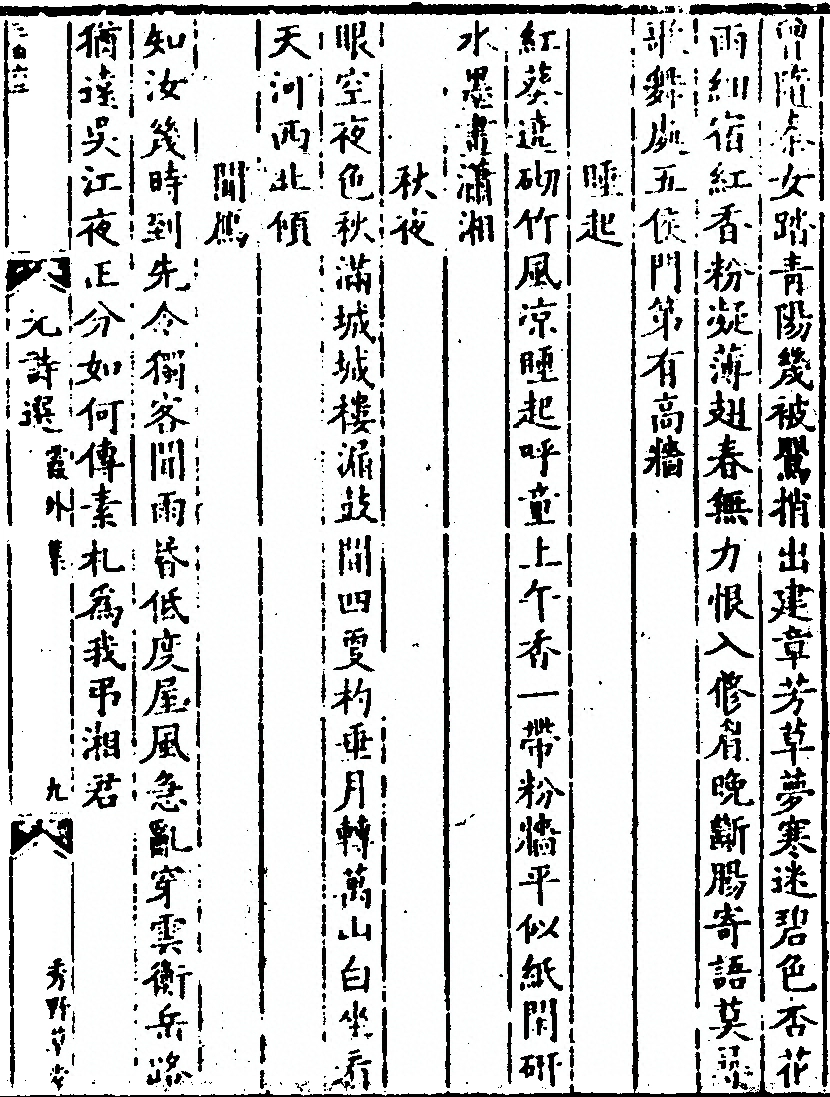 隨秦女踏青陽幾被鶯捎出建章芳草夢寒迷碧色杏花
雨細宿紅香粉凝薄翅春無力恨入修眉晚斷腸寄語莫
歌舞處五侯門第有高牆
睡起
紅葵遶砌竹風凉睡起呼童上午香一帶粉牆平似紙閒研
水墨畫瀟湘
秋夜
眼空夜色秋滿城城樓漏鼓聞四更杓垂月轉萬山白坐看
天河西北傾
聞鴈
知汝幾時到先令獨客聞雨昏低度屋風急亂穿雲衡岳路
猶遠吳江夜正分如何傳素札爲我弔湘君
元詩選 霞外集 九 秀野草堂